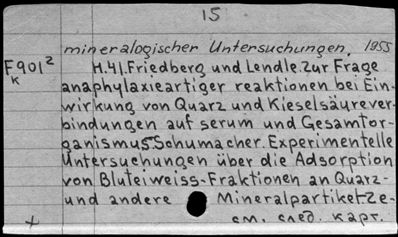 15
mineralogischer Untersuchungen, 1955
F901² H.41.Friedberg und Lendle.Zur Frage
K anaphylaxieartiger reaktionen bei Ein-
wirkung von Quarz und Kieselsäurever-
bindungen auf serum und Gesamtor-
ganismus Schumacher. Experimentelle
Untersuchungen über die Adsorption
von Bluteiweiss-Fraktionen an Quarz-
und andere Mineralpartikel-Ze-
+ см. след. карт.